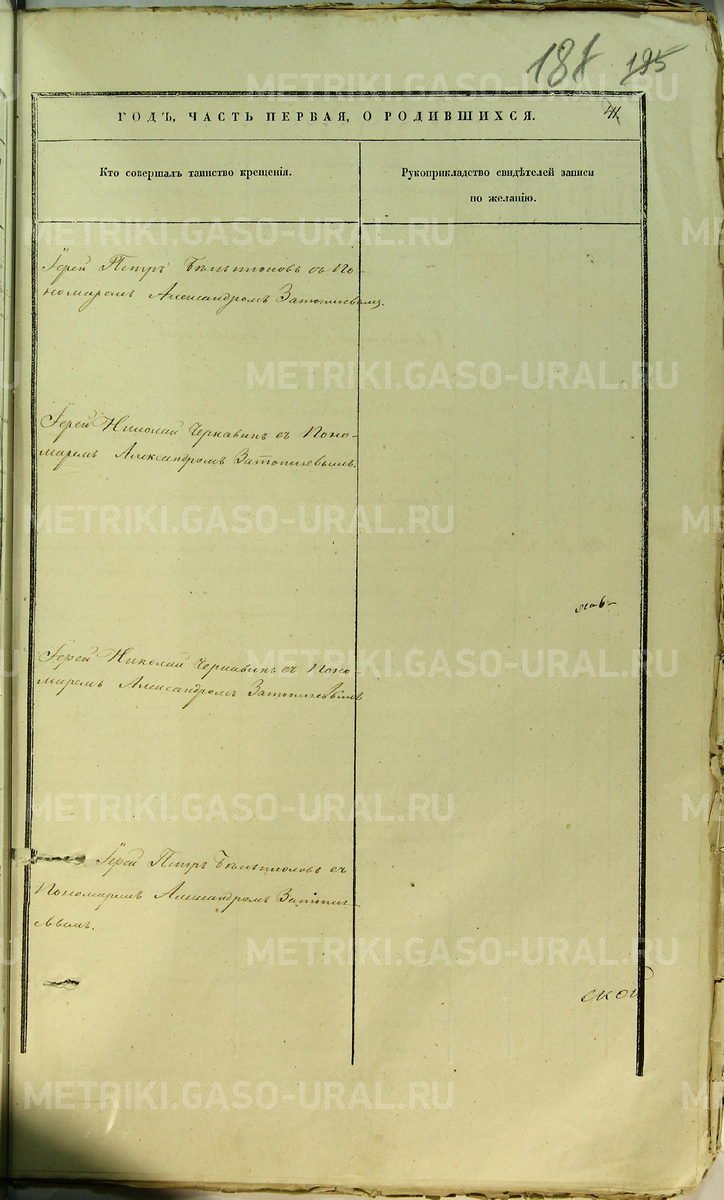 188 185
ГОДЪ, ЧАСТЬ ПЕРВАЯ, О РОДИВШИХСЯ.
Кто совершалъ таинство крещенія.
Рукоприкладство свидѣтелей записи
по желанію.
Іерей Петръ съ По-
номаремъ Александромъ
Іерей Николай Чернавинъ съ Поно-
маремъ Александромъ Затопляевымъ.
Іерей Николай Чернавинъ съ Поно-
маремъ Александромъ Затопляевымъ
Іерей Петръ съ
Пономаремъ Александромъ Затопля-
евымъ.
ской
METRIKI.GASO-URAL.RU